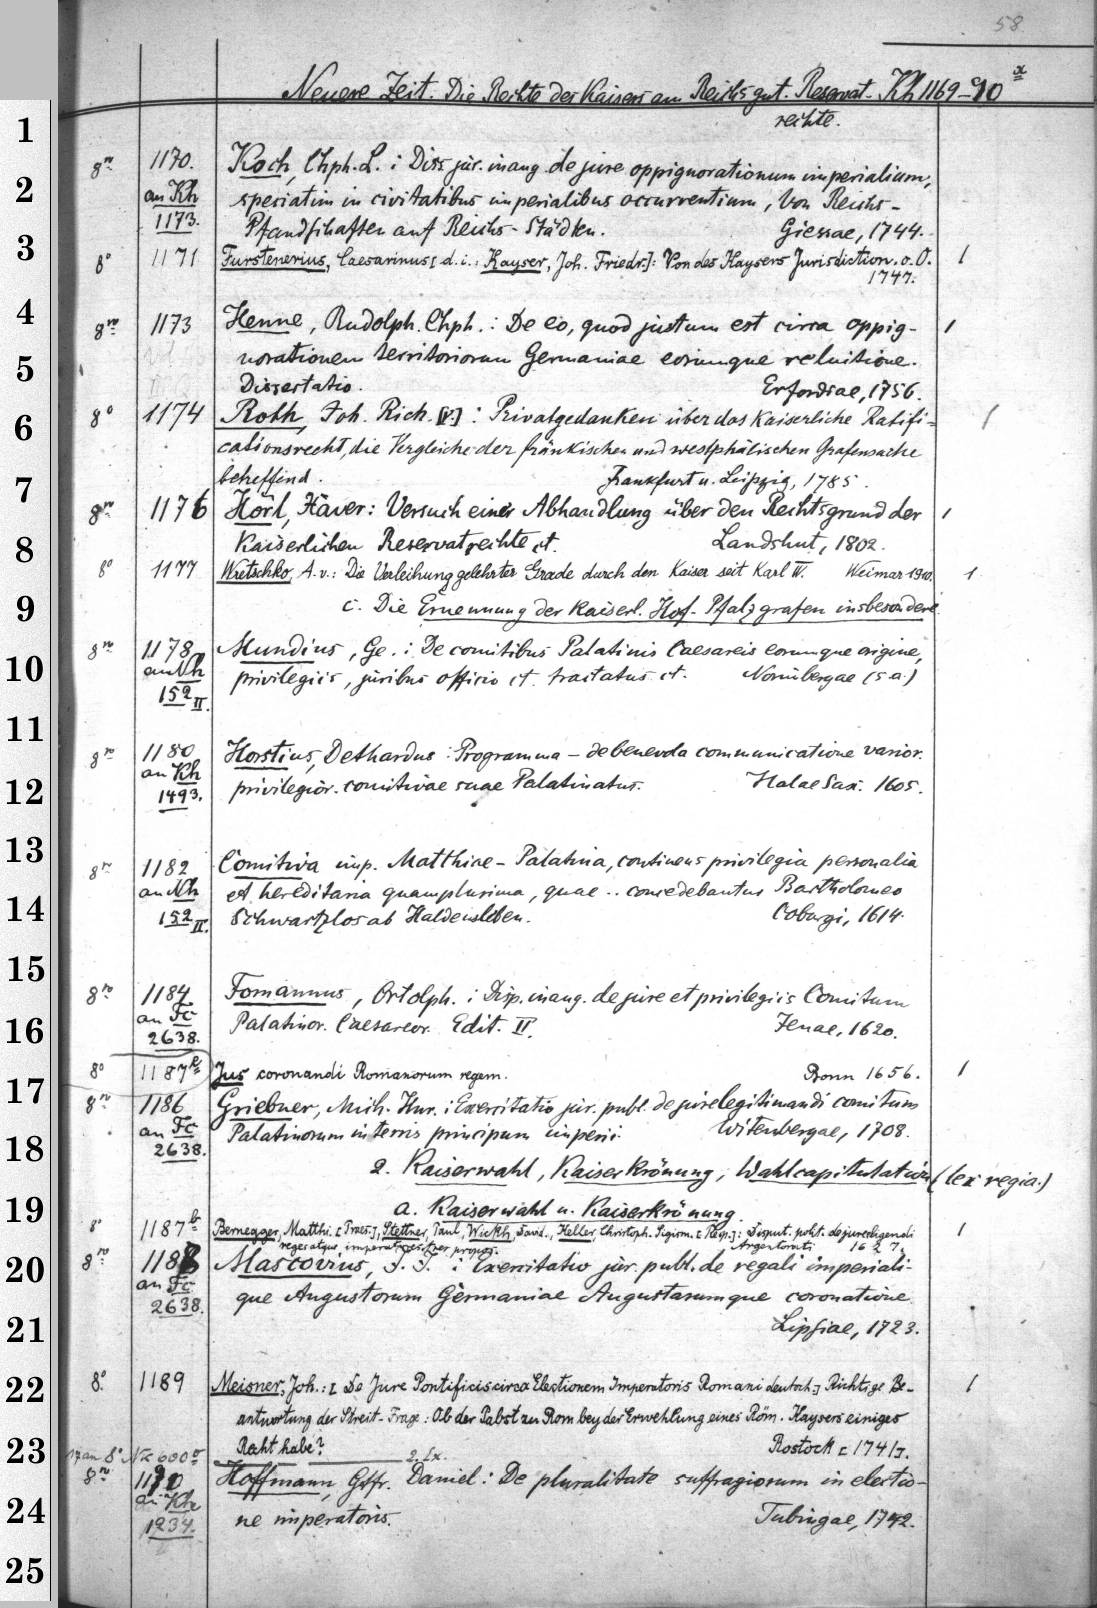 58
Neuere Zeit. Die Rechte des Kaisers am Reichsgut. Reservat- Kh 1169-90 x
rechte.
8ro 1170. Koch, Chph. L. : Diss. jur. inaug. de jure oppignorationum imperialium,
an Kh speciatim in civitatibus imperialibus occurrentium, von Reichs-
1173. Pfandschaften auf Reichs-Städten. Giessae, 1744.
8° 1171 Furstenerius, Caesarinus [d. i.: Kayser, Joh. Friedr.]: Von des Kaysers Jurisdiction. o. O. 1
1747.
8ro 1173 Henne, Rudolph. Chph. : De eo, quod justum est circa oppig- 1
norationem territoriorum Germaniae eorumque reluitione.
Dissertatio. Erfordiae, 1756.
8° 1174 Roth, Joh. Rich. [v.] : Privatgedanken über das Kaiserliche Ratifi- 1
cationsrecht, die Vergleiche der fränkischen und westphälischen Grafensache
betreffend. Frankfurt u. Leipzig, 1785.
8ro 1176 Hörl, Xaver: Versuch einer Abhandlung über den Rechtsgrund der 1
Kaiserlichen Reservatrechte et. Landshut, 1802.
8° 1177 Wretschko, A. v.: Die Verleihung gelehrter Grade durch den Kaiser seit Karl IV. Weimar 1910. 1
c. Die Ernennung der Kaiserl. Hof-Pfalzgrafen insbesondere
8ro 1178 Mundius, Ge. : De comitibus Palatinis Caesareis eorumque origine,
an Nh privilegiis, juribus officio et. tractatus et. Norimbergae (s. a.)
152 II.
8ro 1180 Horstius, Dethardus : Programma – de benevola communicatione varior.
an Kh privilegior. comitivae suae Palatinatus. Halae Sax. 1605.
1493.
8ro 1182 Comitiva imp. Matthiae – Palatina, continens privilegia personalia
an Nh et hereditaria quamplurima, quae .. concedebantur Bartholomeo
152 II. Schwartzlos ab Haldensleben. Coburgi, 1614.
8ro 1184 Fomannus, Ortolph. : Disp. inaug. de jure et privilegiis Comitum
an Fc Palatinor. Caesareor. Edit. II. Jenae, 1620.
2638.
8° 1187a Jus coronandi Romanorum regem. Bonn 1656. 1
8ro 1186 Griebner, Mich. Hnr. : Exercitatio jur. publ. de jure legitimandi comitum
an Fc Palatinorum in terris principum imperii. Witenbergae, 1708.
2638.
2. Kaiserwahl, Kaiserkrönung, Wahlcapitulation (lex regia.)
a. Kaiserwahl u. Kaiserkrönung
8° 1187b Bernegger, Matthi. [Praes.], Stettner, Paul, Wickh, David., Heller, Christoph. Sigism. [Resp.]: Disput. polit. de jure eligendi 1
reges atque imperatores Argentorati 1627.
8ro 1188 Mascovius, J. J. : Exercitatio jur. publ. de regali imperiali-
an Fc que Augustorum Germaniae Augustarumque coronatione
2638. Lipsiae, 1723.
8° 1189 Meisner, Joh.: [De Jure Pontificis circa Electionem Imperatoris Romani deutsch.] Richtige Be- 1
antwortung der Streit-Frage: Ob der Pabst zu Rom bey der Erwehlung eines Röm. Kaysers einiges
Recht habe? Rostock [1741].
an 8° Nx 600 2. Ex.
8ro 1190 Hoffmann, Gtfr. Daniel: De pluralitate suffragiorum in electio-
an Kh ne imperatoris. Tubingae, 1742.
1234.
1
2
3
4
5
6
7
8
9
10
11
12
13
14
15
16
17
18
19
20
21
22
23
24
25